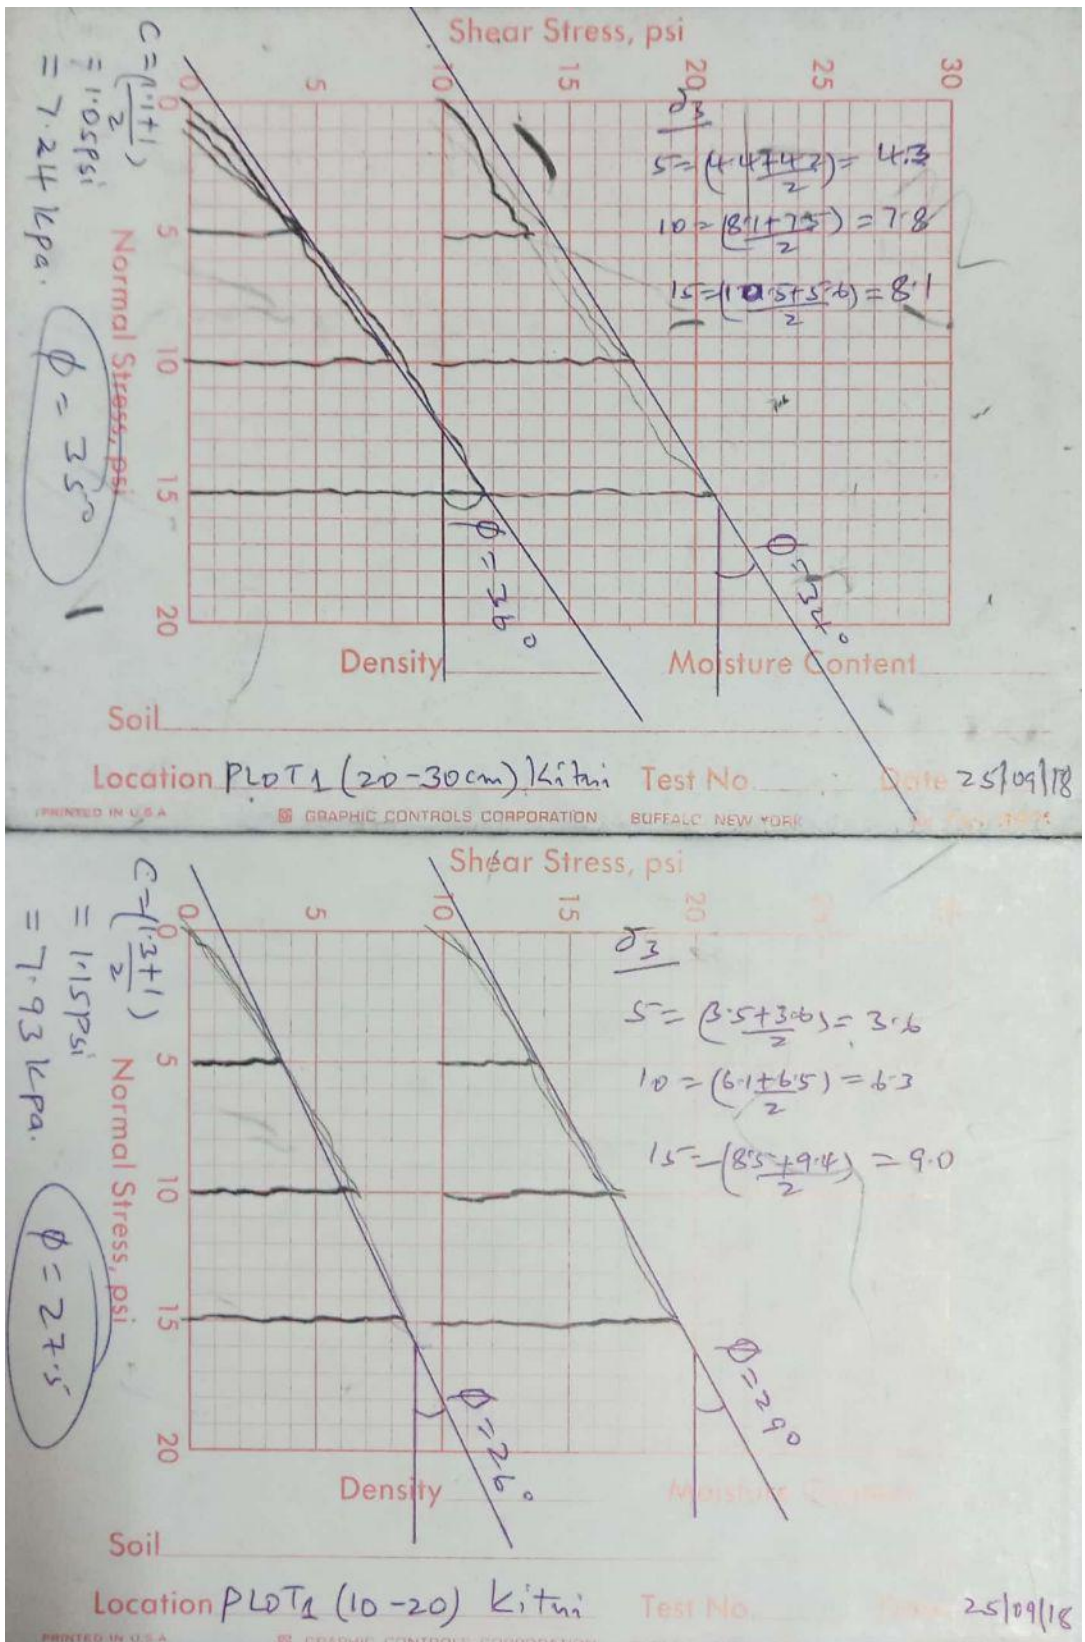 Shear Stress, psi
0 5 10 15 20 25 30
0
5
10
15
20
Normal Stress, psi
C = (1.1+1)/2
= 1.05psi
= 7.24 kpa.
φ = 35°
5 = (4.4+4.2)/2 = 4.3
10 = (8.1+7.5)/2 = 7.8
φ = 36°
Density
Moisture Content
Soil
Location PLOT1 (20-30cm) Kitui Test No. Date 25/09/18
PRINTED IN U.S.A GRAPHIC CONTROLS CORPORATION BUFFALO NEW YORK
Shear Stress, psi
0 5 10 15 20
0
5
10
15
20
Normal Stress, psi
C = (1.3+1)/2
= 1.15psi
= 7.93 kpa.
φ = 27.5
5 = (3.5+3.6)/2 = 3.6
10 = (6.1+6.5)/2 = 6.3
15 = (8.5+9.4)/2 = 9.0
φ = 26°
φ = 29°
Density
Moisture
Soil
Location PLOT1 (10-20) Kitui Test No. 25/09/18
PRINTED IN U.S.A GRAPHIC CONTROLS CORPORATION